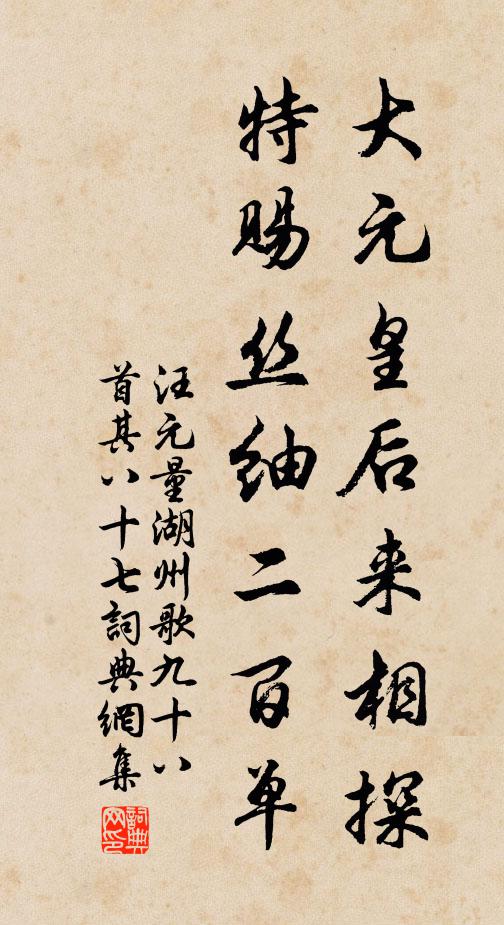 大元皇后来相探
特赐丝䌷二百单
汪元量湖州歌九十八
首其八十七詞典網集
詞典网印